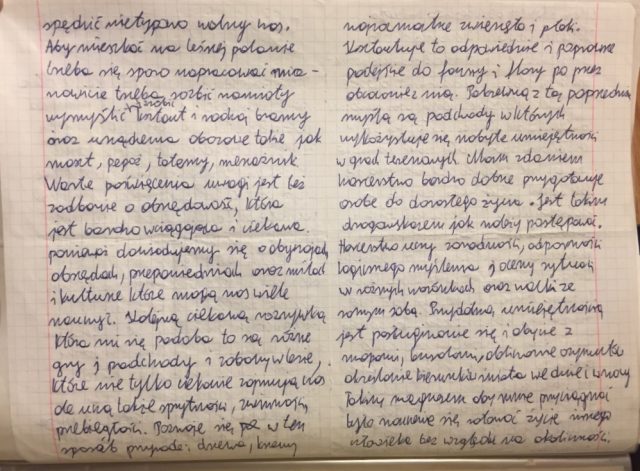 spędzić nietypowo wolny czas.
Aby mieszkać na leśnej polanie
trzeba się sporo napracować mia-
nowicie trzeba rozbić namioty
wymyślić i zrobić kształt i rodzaj bramy
oraz urządzenia obozowe takie jak
maszt, totemy, menażnik
Warte poświęcenia uwagi jest też
zadbanie o obrzędowość, która
jest bardzo wciągająca i ciekawa
ponieważ dowiadujemy się o obyczajach
obrzędach, przepowiedniach oraz
i kulturze które mogą nas wiele
nauczyć. Kolejną ciekawą rozrywką
która mi się podoba to są różne
gry i podchody i zabawy w lesie,
które nie tylko ciekawie zajmują czas
ale uczą także sprytności, zwinności,
przebiegłości. Poznaje się po w ten
sposób przyrodę; drzewa, krzewy
najrozmaitsze zwierzęta i ptaki.
Kształtuje to odpowiednie i poprawne
podejście do fauny i flory po przez
obcowanie z nią. z tą poprzednią
myślą są podchody w których
wykożystuje się nabyte umiejętności
w grach terenowych. Moim zdaniem
harcerstwo bardzo dobrze przygotowuje
osobę do dorosłego życia. Jest takim
drogowskazem jak należy postępować.
Harcerstwo uczy zaradności, odporności
logicznego myślenia i oceny sytuacji
w różnych warunkach oraz walki ze
samym sobą. Przydatną umiejętnością
jest posługiwanie się i obycie z
mapami, busolami, obliczanie azymutu
określanie kierunków świata we dnie i w nocy
Takim magnesem aby mnie przyciągnąć
było nauczenie się ratować życie innego
człowieka bez względu na okoliczności.